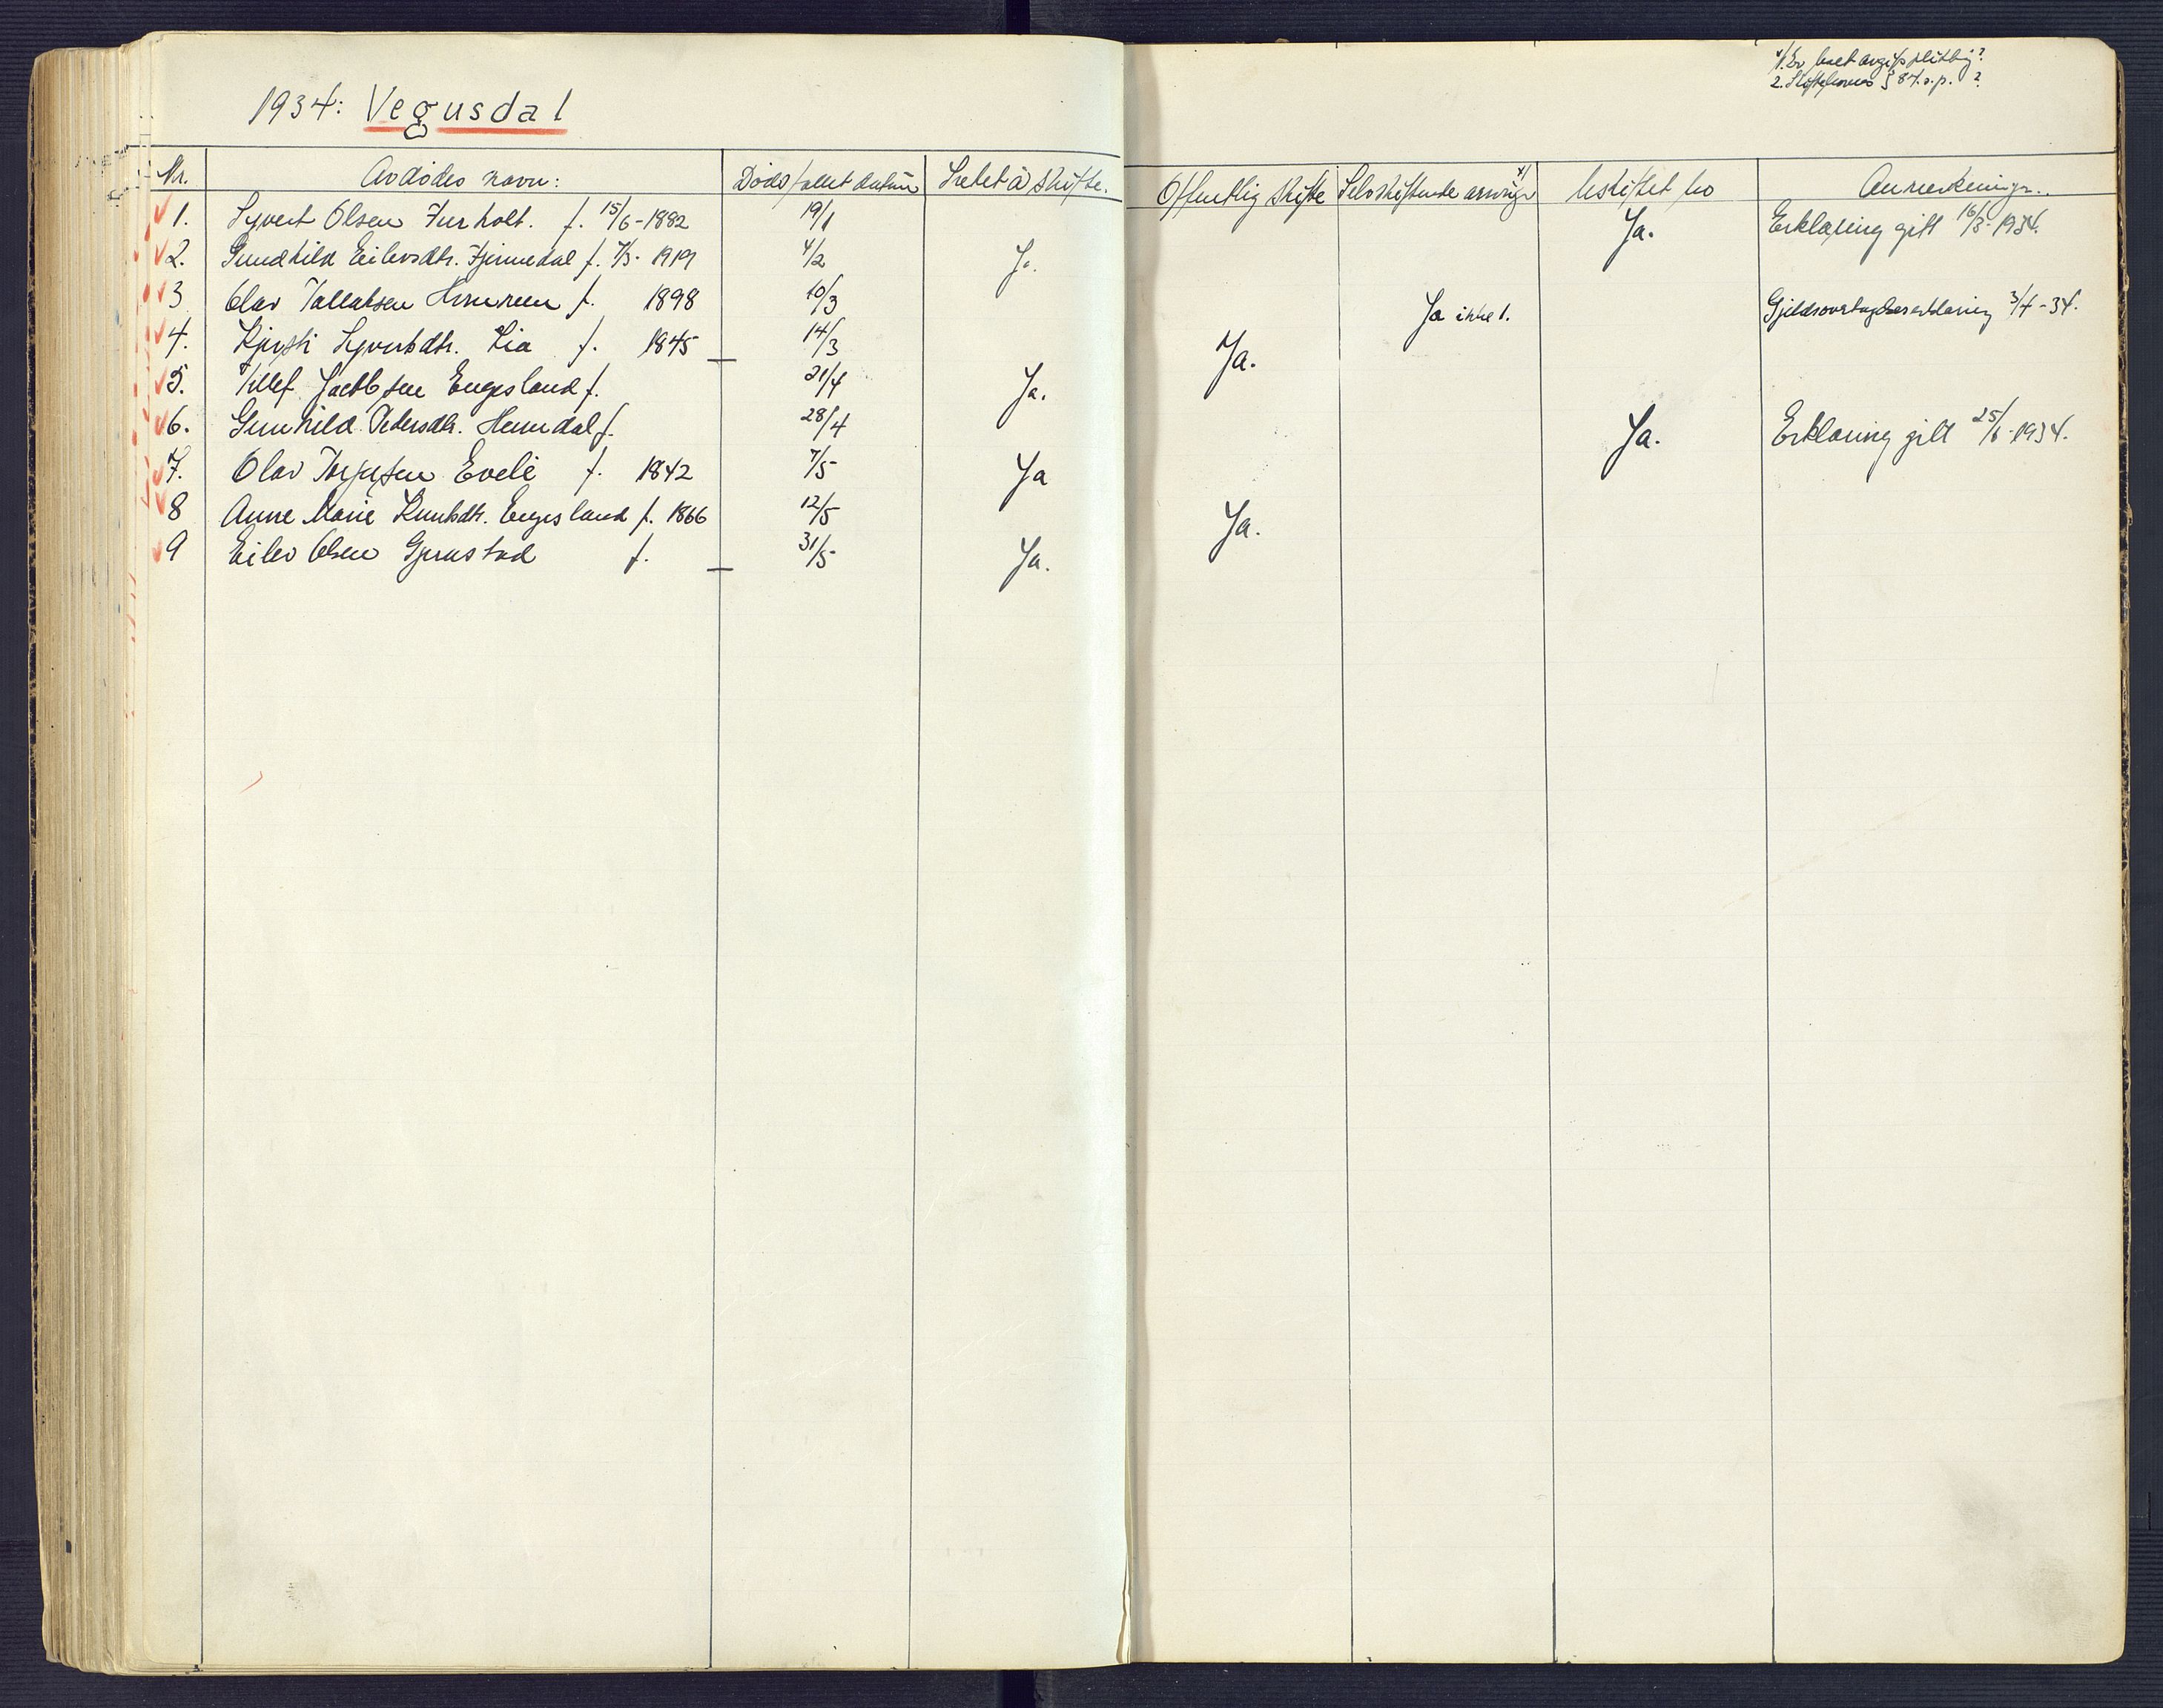 1. Er boet avgiftspliktig?
2. Skiftelovens § 87. s.p. ?
1934: Vegusdal
Nr. Avdødes navn: Dødsfallet datum Intet å skifte. Offentlig skifte Selvskiftende arvinger x) Uskiftet bo Anmerkninger.
1. Syvert Olsen Furholt. f. 15/6-1882 19/1 Ja. Erklæring gitt 16/3-1934.
2. Gundhild Eilevsdtr. f. 7/3-1919 4/2 Ja.
3 Olav Tallaksen f. 1898 10/3 Ja ikke 1. Gjeldsovertagelseserklæring 3/4-34.
4. Kjersti Syvertsdtr. Lia f. 1845 14/3 Ja.
5. Tellef Jacobsen Engesland f. 21/4 Ja.
6. Gunhild Pedersdtr. Heimdal f. 28/4 Ja. Erklæring gitt 25/6-1934.
7. Olav Terjesen Eveli f. 1842 7/5 Ja
8 Anne Marie Knutsdtr. Engesland f. 1866 12/5 Ja.
9 Eilev Olsen Gjerustad f. 31/5 Ja.